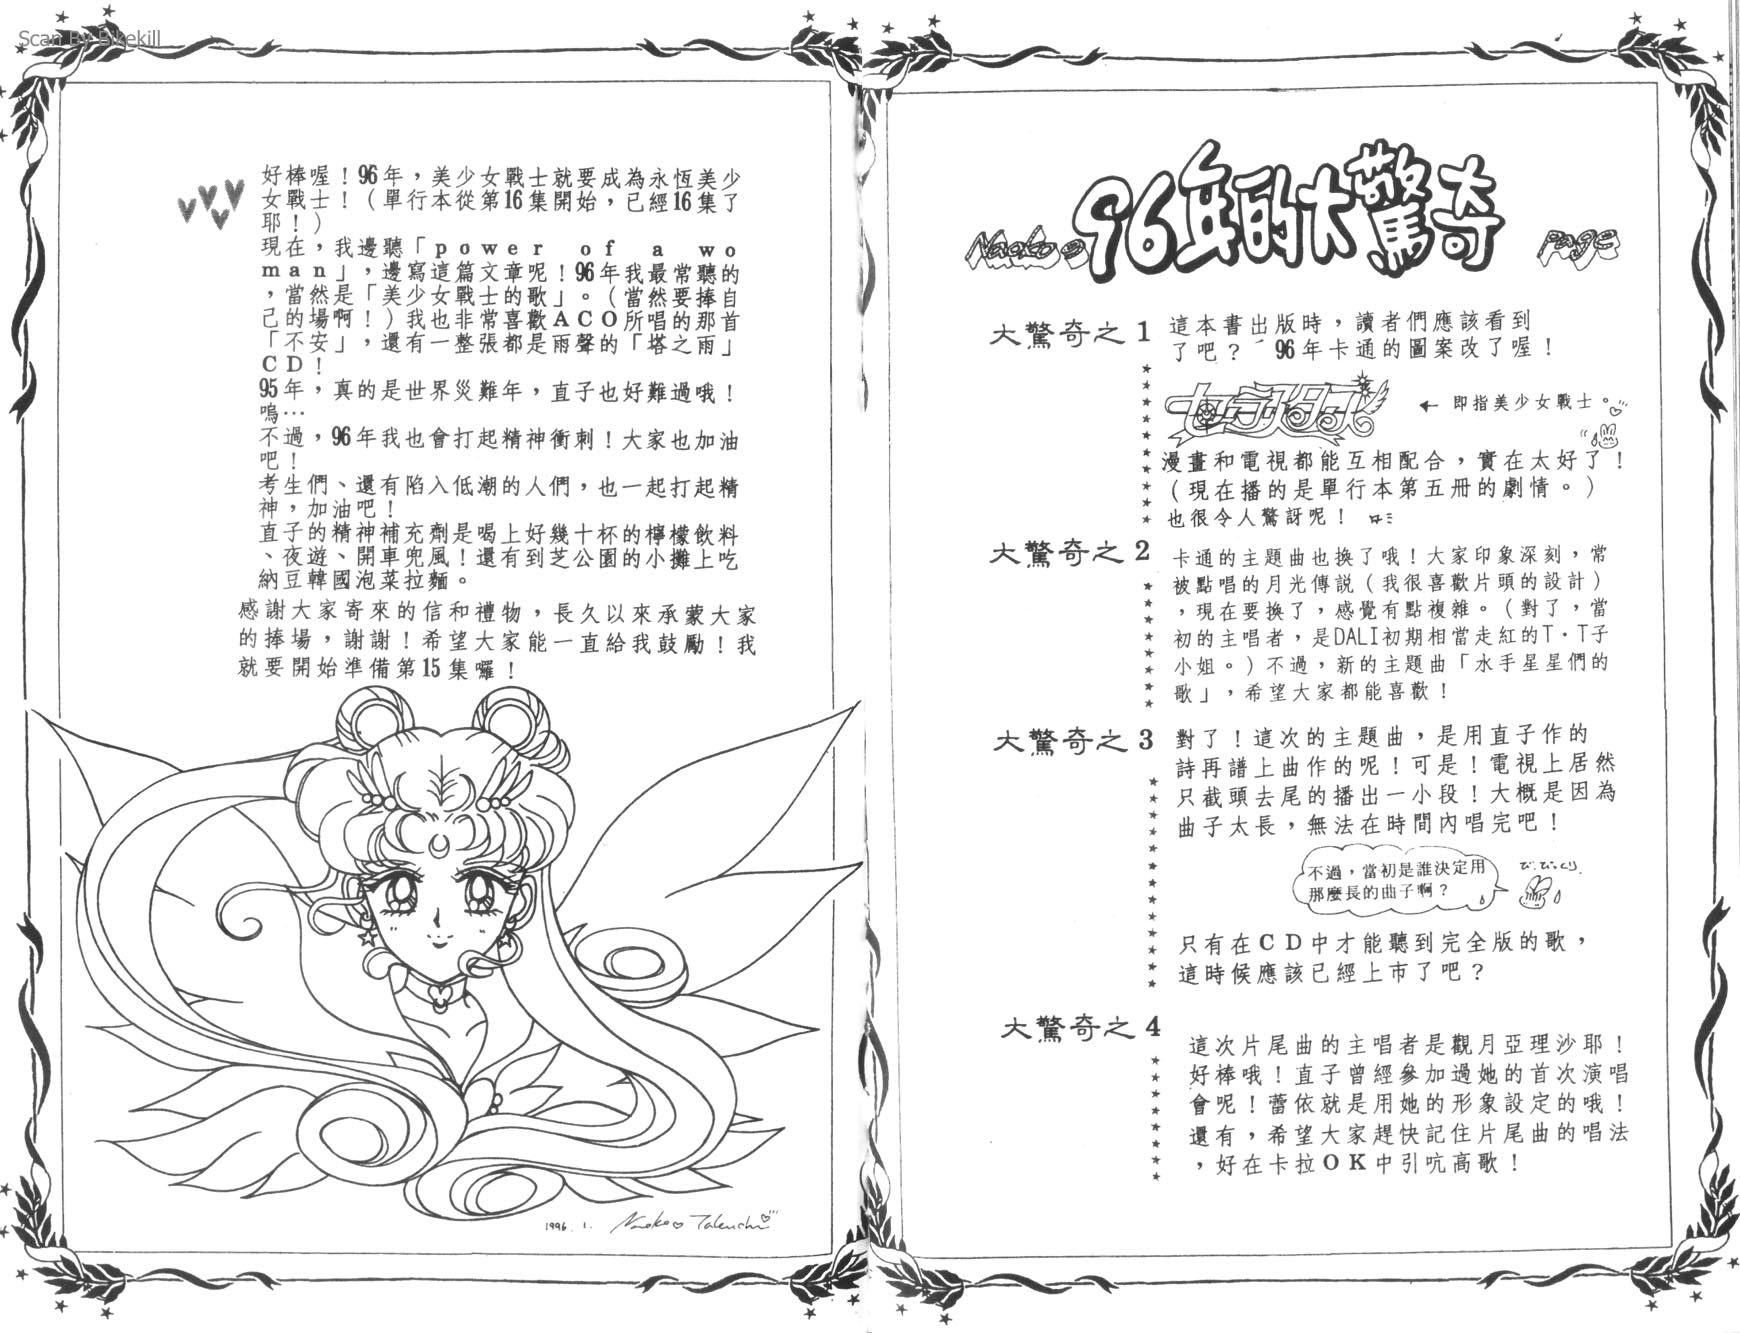 Scan By Bikekill
好棒喔！96年，美少女戰士就要成為永恆美少
女戰士！（單行本從第16集開始，已經16集了
耶！）
現在，我邊聽「power of a wo
man」，邊寫這篇文章呢！96年我最常聽的
，當然是「美少女戰士的歌」。（當然要捧自
己的場啊！）我也非常喜歡ACO所唱的那首
「不安」，還有一整張都是雨聲的「塔之雨」
CD！
95年，真的是世界災難年，直子也好難過哦！
嗚…
不過，96年我也會打起精神衝刺！大家也加油
吧！
考生們、還有陷入低潮的人們，也一起打起精
神，加油吧！
直子的精神補充劑是喝上好幾十杯的檸檬飲料
、夜遊、開車兜風！還有到芝公園的小攤上吃
納豆韓國泡菜拉麵。
感謝大家寄來的信和禮物，長久以來承蒙大家
的捧場，謝謝！希望大家能一直給我鼓勵！我
就要開始準備第15集囉！
1996. 1. Naoko Takeuchi
Naoko's 96年的大驚奇 Page
大驚奇之1
這本書出版時，讀者們應該看到
了吧？ 96年卡通的圖案改了喔！
セーラースターズ
← 即指美少女戰士。
漫畫和電視都能互相配合，實在太好了！
（現在播的是單行本第五冊的劇情。）
也很令人驚訝呢！
大驚奇之2
卡通的主題曲也換了哦！大家印象深刻，常
被點唱的月光傳說（我很喜歡片頭的設計）
，現在要換了，感覺有點複雜。（對了，當
初的主唱者，是DALI初期相當走紅的T·T子
小姐。）不過，新的主題曲「水手星星們的
歌」，希望大家都能喜歡！
大驚奇之3
對了！這次的主題曲，是用直子作的
詩再譜上曲作的呢！可是！電視上居然
只截頭去尾的播出一小段！大概是因為
曲子太長，無法在時間內唱完吧！
不過，當初是誰決定用
那麼長的曲子啊？
びっくり
只有在CD中才能聽到完全版的歌，
這時候應該已經上市了吧？
大驚奇之4
這次片尾曲的主唱者是觀月亞理沙耶！
好棒哦！直子曾經參加過她的首次演唱
會呢！蕾依就是用她的形象設定的哦！
還有，希望大家趕快記住片尾曲的唱法
，好在卡拉OK中引吭高歌！